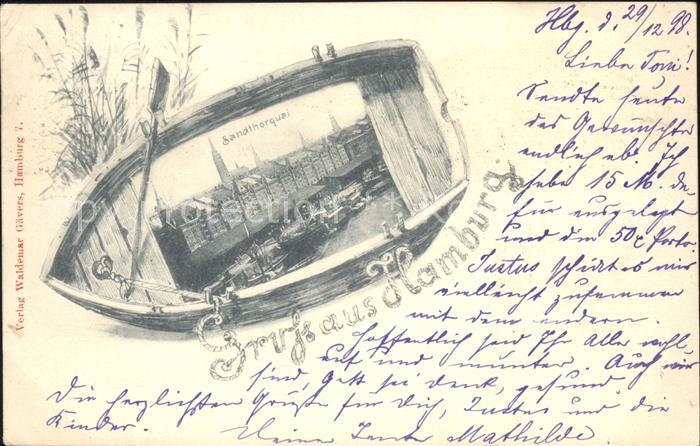 Hbg. d. 29/12 98.
Liebe Toni!
Sendte heute
das Gewünschte
endlich ab. Ich
habe 15 M. da-
für ausgelegt
und die 50 Porto.
Justus schickt es mir
vielleicht zusammen
mit dem andern.
Hoffentlich seid Ihr Alle wohl
auf und munter. Auch wir
sind, Gott sei Dank, gesund.
Die herzlichsten Grüße für Dich, Justus und die
Kinder.
Deine Tante Mathilde
Sandthorquai
Gruss aus Hamburg.
Verlag Waldemar Gävers, Hamburg 7.